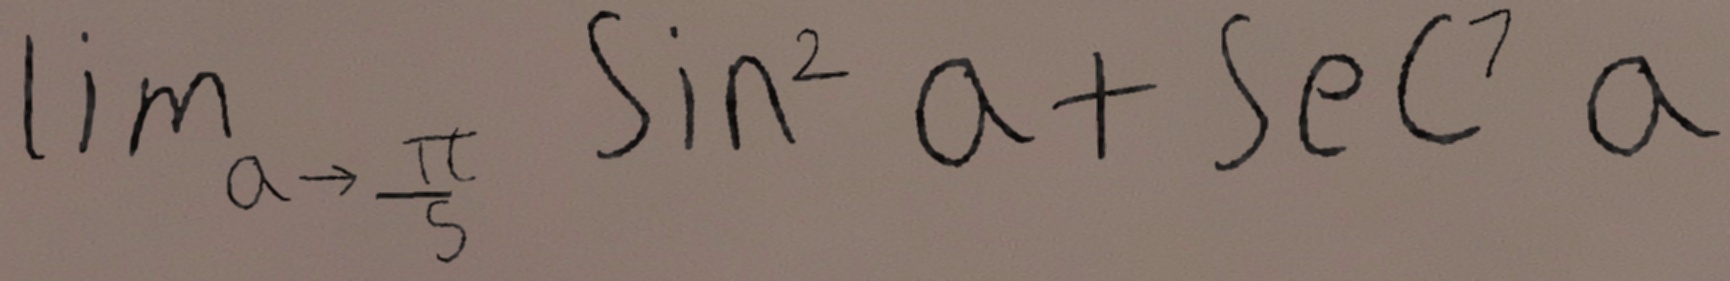 lim_{a→\frac{π}{5}} sin² a + sec⁷ a